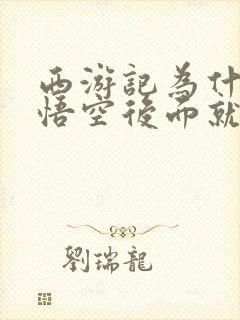 西游記為什
悟空後而就
劉瑞龍